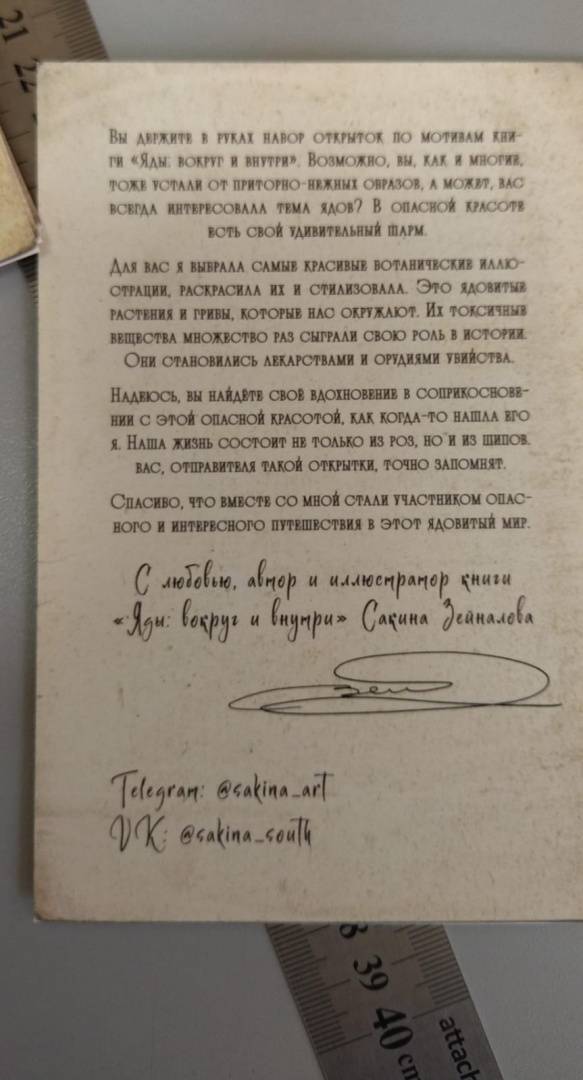 21
22
Вы держите в руках набор открыток по мотивам кни-
ги «Яды: вокруг и внутри». Возможно, вы, как и многие,
тоже устали от приторно-нежных образов, а может, вас
всегда интересовала тема ядов? В опасной красоте
есть свой удивительный шарм.
Для вас я выбрала самые красивые ботанические иллю-
страции, раскрасила их и стилизовала. Это ядовитые
растения и грибы, которые нас окружают. Их токсичные
вещества множество раз сыграли свою роль в истории.
Они становились лекарствами и орудиями убийства.
Надеюсь, вы найдёте своё вдохновение в соприкоснове-
нии с этой опасной красотой, как когда-то нашла его
я. Наша жизнь состоит не только из роз, но и из шипов.
вас, отправителя такой открытки, точно запомнят.
Спасибо, что вместе со мной стали участником опас-
ного и интересного путешествия в этот ядовитый мир.
С любовью, автор и иллюстратор книги
«Яды: вокруг и внутри» Сакина Зейналова
Зей
Telegram: @sakina_art
VK: @sakina_south
8 39 40 cm
attach